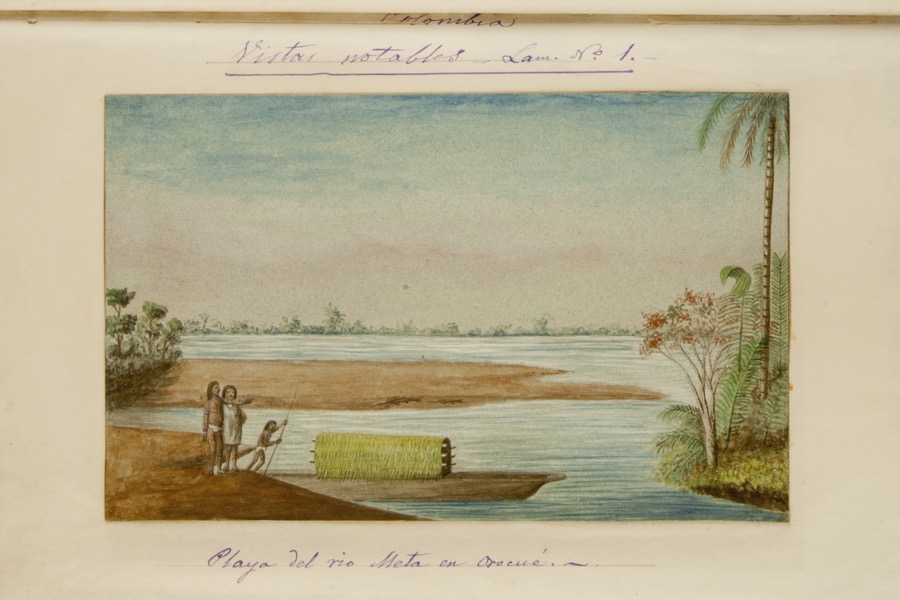 Colombia
Vistas notables - Lam. Nº 1. -
Playa del rio Meta en Orocué. -